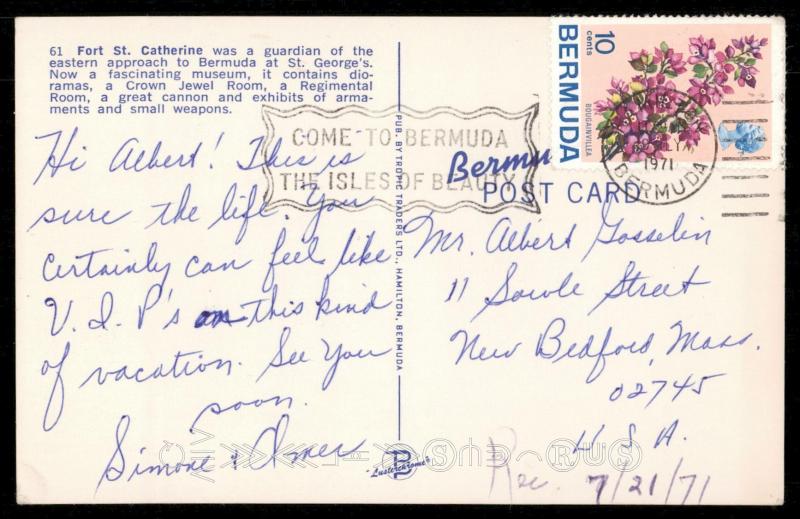 61 Fort St. Catherine was a guardian of the
eastern approach to Bermuda at St. George's.
Now a fascinating museum, it contains dio-
ramas, a Crown Jewel Room, a Regimental
Room, a great cannon and exhibits of arma-
ments and small weapons.
COME TO BERMUDA
THE ISLES OF BEAUTY
10
cents
BERMUDA
BOUGAINVILLEA
1971
BERMUDA
Bermu
POST CARD
Hi Albert! This is
sure the life. You
certainly can feel like
V.I.P's on this kind
of vacation. See You
soon.
Simone & Omer
PUB. BY TROPIC TRADERS LTD., HAMILTON, BERMUDA
Mr. Albert Gosselin
11 Sowle Street
New Bedford, Mass.
02745
U S A.
Rec. 7/21/71
"Lusterchrome"